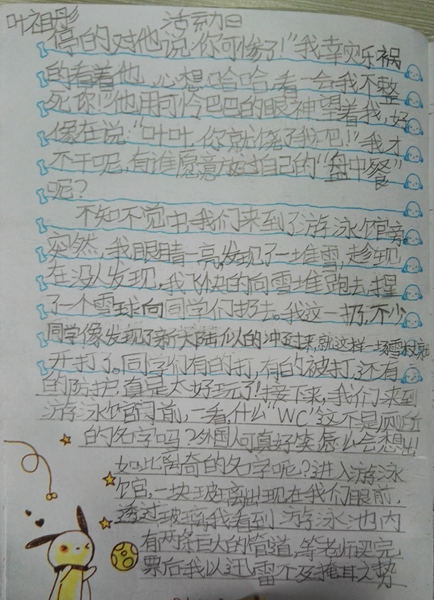 叶祖彤 活动日
停的对他说:"你可惨了!"我幸灾乐祸
的看着他,心想哈哈,看一会我不整
死你!"他用可怜巴巴的眼神望着我,好
像在说:"叶叶,你就饶了我吧!"我才
不干呢,有谁愿意放过自己的"盘中餐"
呢?
不知不觉中,我们来到了游泳馆旁
突然,我眼睛一亮,发现了一堆雪,趁现
在没人发现,我飞快的向雪堆跑去,捏
了一个雪球向同学们扔去。我这一扔,不少
同学像发现了新大陆似的冲过来,就这样一场雪仗就
开打了。同学们有的打,有的被打,还有
的防护,真是太好玩了!接下来,我们来到
游泳馆门前,一看,什么"WC"这不是厕所
的名字吗?外国人可真好笑,怎么会想出
如此离奇的名字呢?进入游泳
馆,一块玻璃出现在我们眼前,
透过玻璃我看到游泳池内
有两条巨大的管道,等老师说完
票后我以迅雷不及掩耳之势